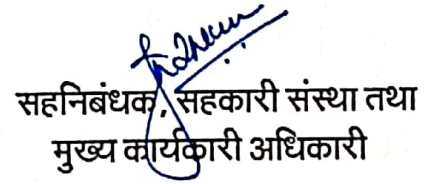 सहनिबंधक, सहकारी संस्था तथा
मुख्य कार्यकारी अधिकारी